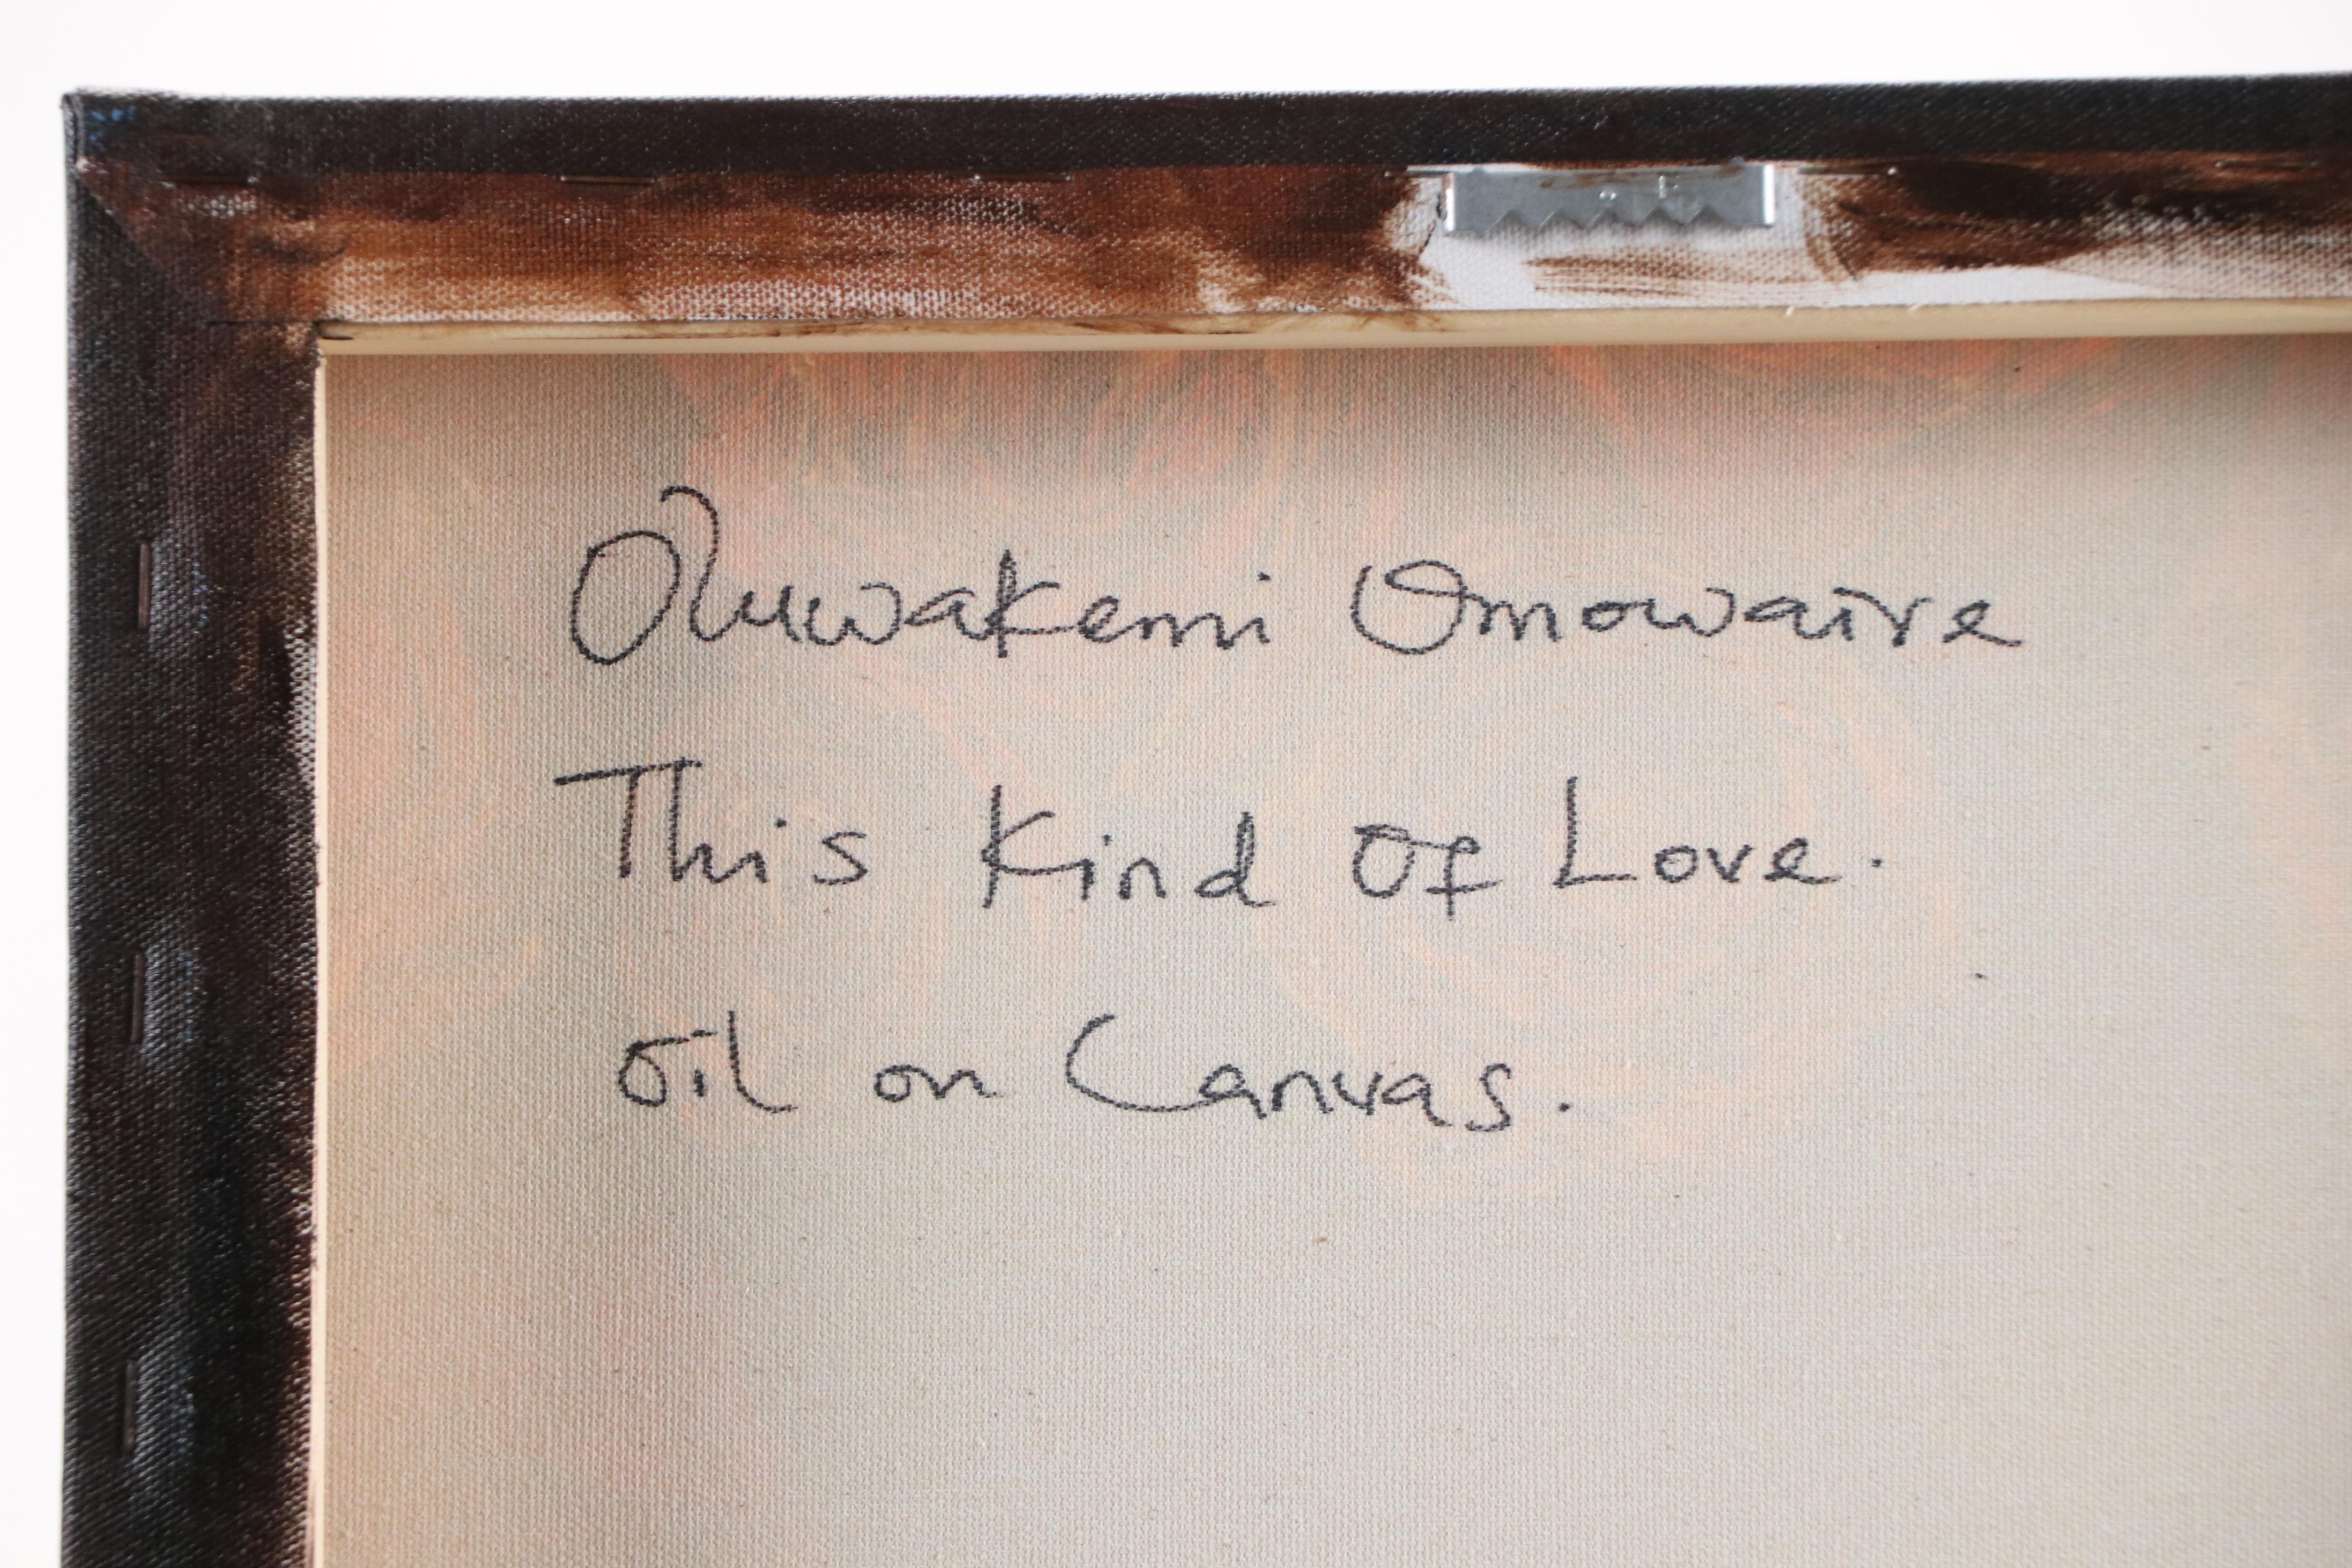 Oluwakemi Omowaire
This Kind Of Love.
oil on Canvas.